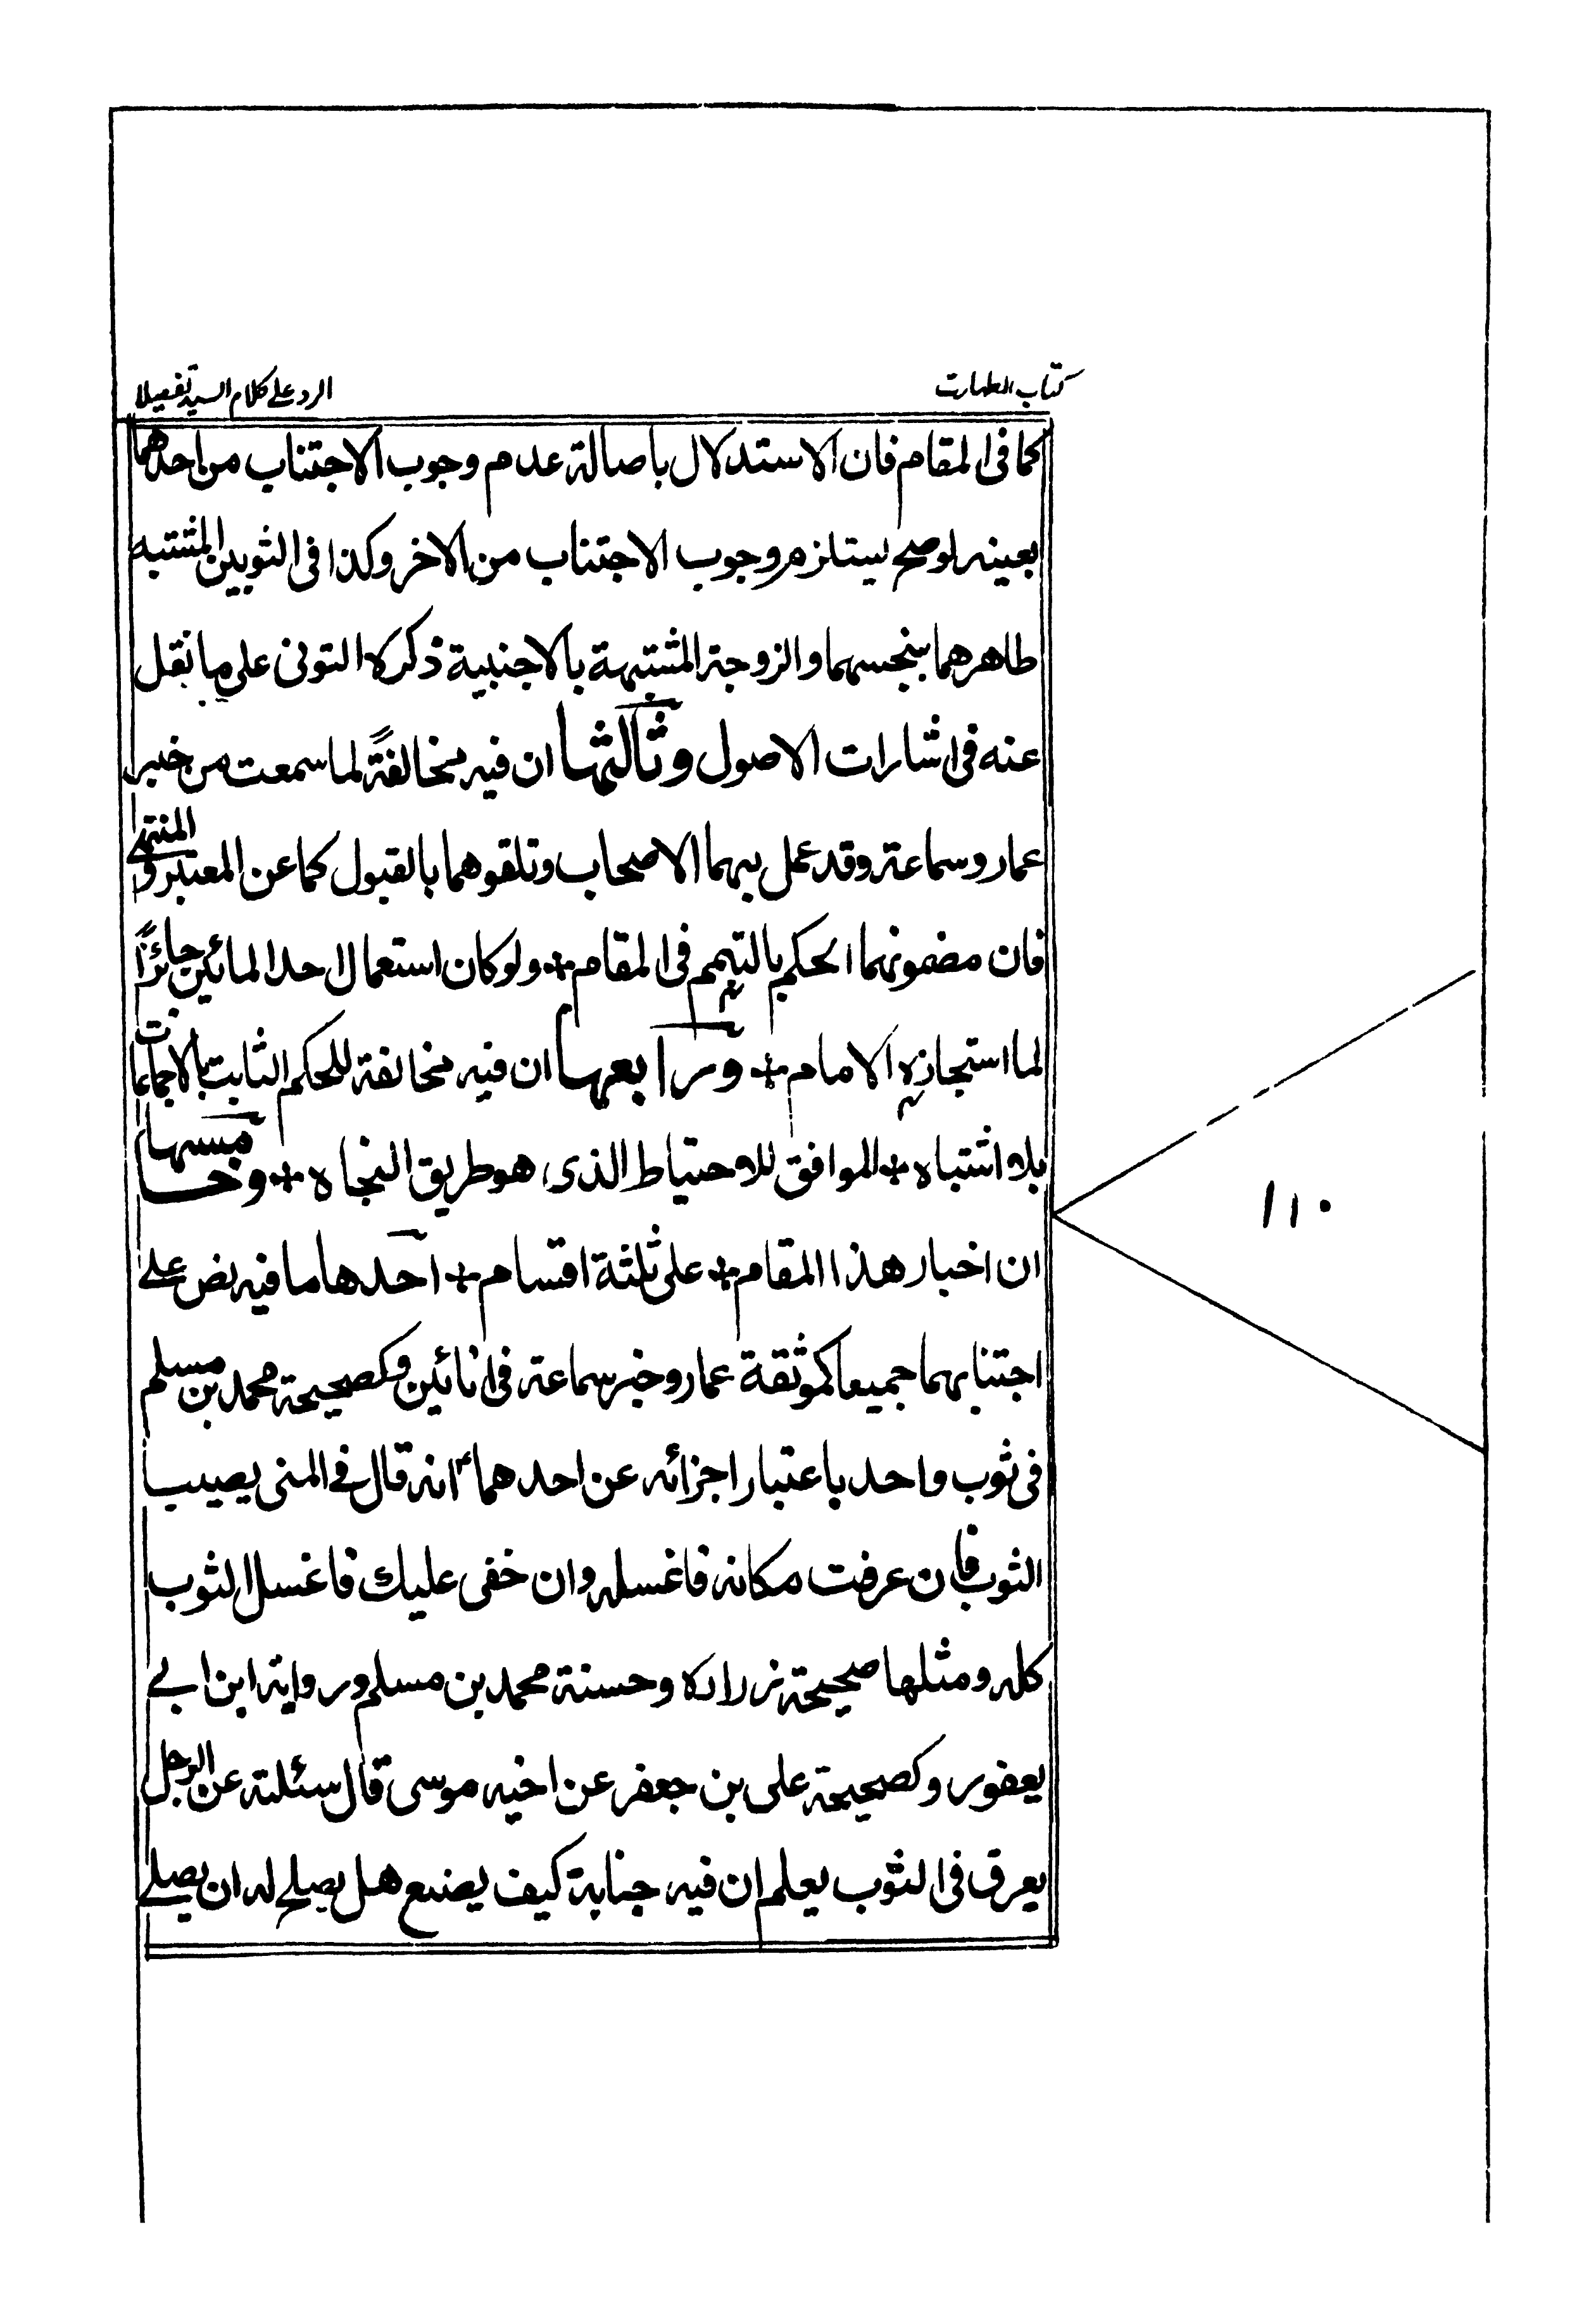 كتاب الطهارت
الرد على كلام السيد تفصيلا
كما فى المقام فان الاستدلال باصالة عدم وجوب الاجتناب من احدهما
بعينه لوصح يستلزم وجوب الاجتناب من الاخر وكذا فى الثوبين المشتبه
طاهرهما بنجسهما والزوجة المشتبهة بالاجنبية ذكره التونى على ما نقل
عنه فى اشارات الاصول وثالثها ان فيه مخالفةً لما سمعت من خبر
عمار وسماعة وقد عمل بهما الاصحاب وتلقوهما بالقبول كما عن المعتبر و المنتهى
فان مضمونهما الحكم بالتيمم فى المقام ولو كان استعمال احد المائين جائزًا
لما استجازه الامام ورابعها ان فيه مخالفة للحكم الثابت بالاجماعات
بلا اشتباه الموافق للاحتياط الذى هو طريق النجاه وخامسها
ان اخبار هذا المقام على ثلثة اقسام احدها ما فيه نص على
اجتنابهما جميعا كموثقة عمار وخبر سماعة فى انائين وكصحيحة محمد بن مسلم
فى ثوب واحد باعتبار اجزائه عن احدهما ع انه قال فى المنى يصيب
الثوب فان عرفت مكانه فاغسله وان خفى عليك فاغسل الثوب
كله ومثلها صحيحة زراره وحسنة محمد بن مسلم ورواية ابن ابى
يعفور وكصحيحة على بن جعفر عن اخيه موسى قال سئلته عن الرجل
يعرق فى الثوب يعلم ان فيه جنابة كيف يصنع هل يصلح له ان يصلى
١١٠